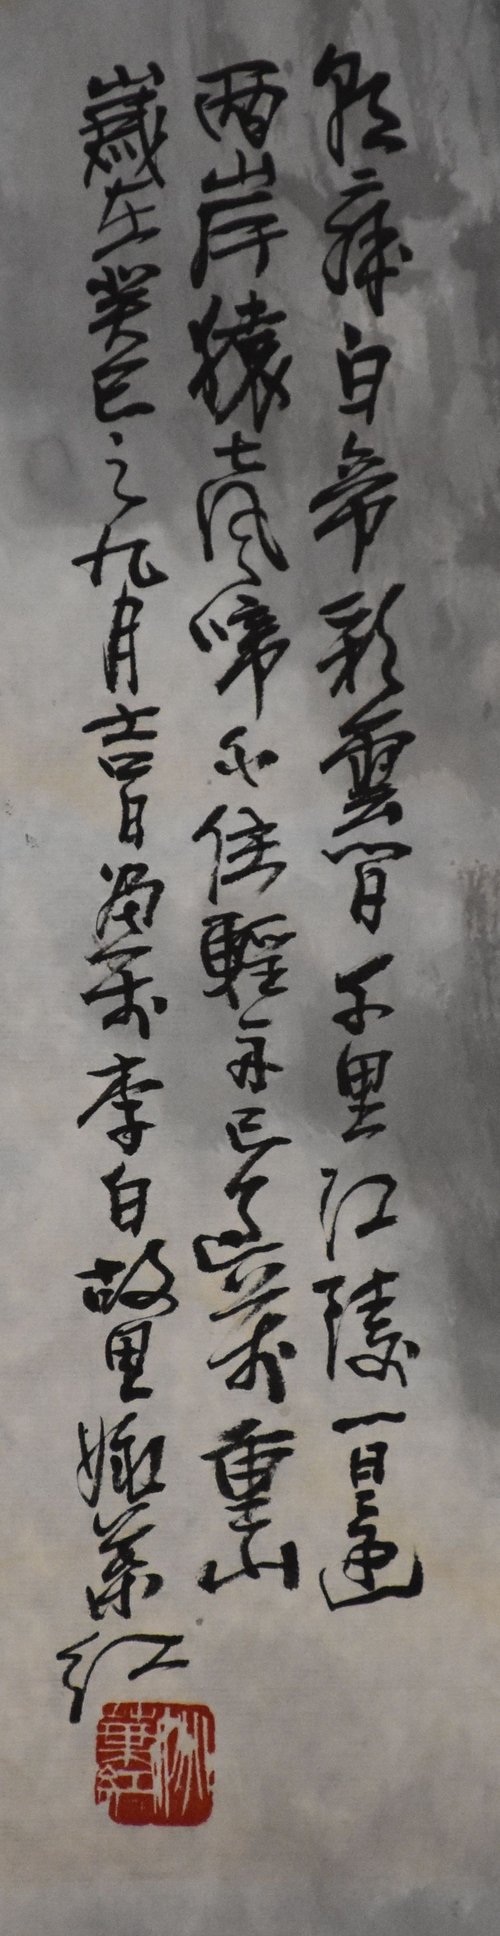 朝辞白帝彩雲間千里江陵一日還
兩岸猿声啼不住輕舟已過萬重山
歲在癸巳之九月吉日李白故里姚葉红
姚葉红